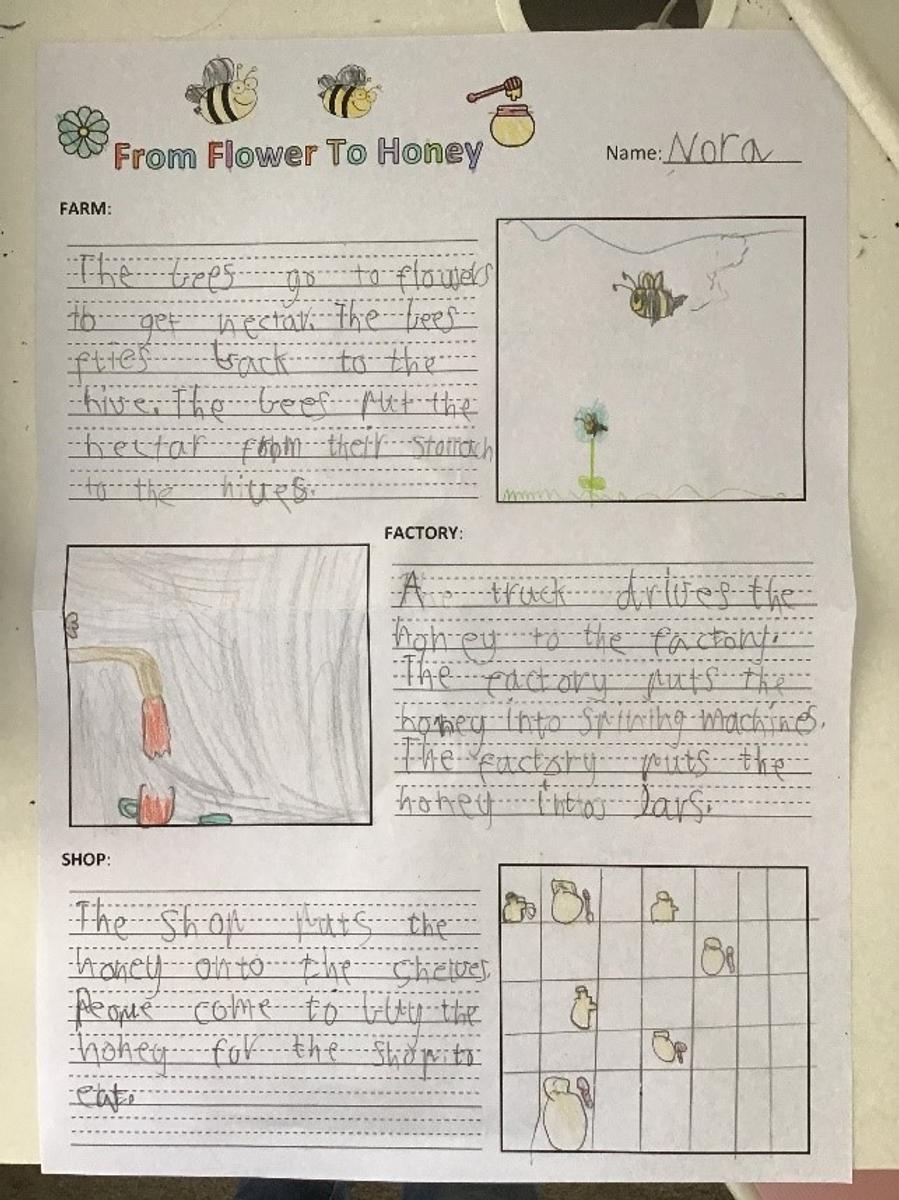 From Flower To Honey
Name: Nora
FARM:
The bees go to flowers
to get nectar. The bees
flies back to the
hive. The bees put the
nectar from their stomach
to the hives.
FACTORY:
A truck drives the
honey to the factory.
The factory puts the
honey into spining machines.
The factory puts the
honey into Jars.
SHOP:
The shop puts the
honey onto the shelves.
Peope come to buy the
honey for the shop to
eat.